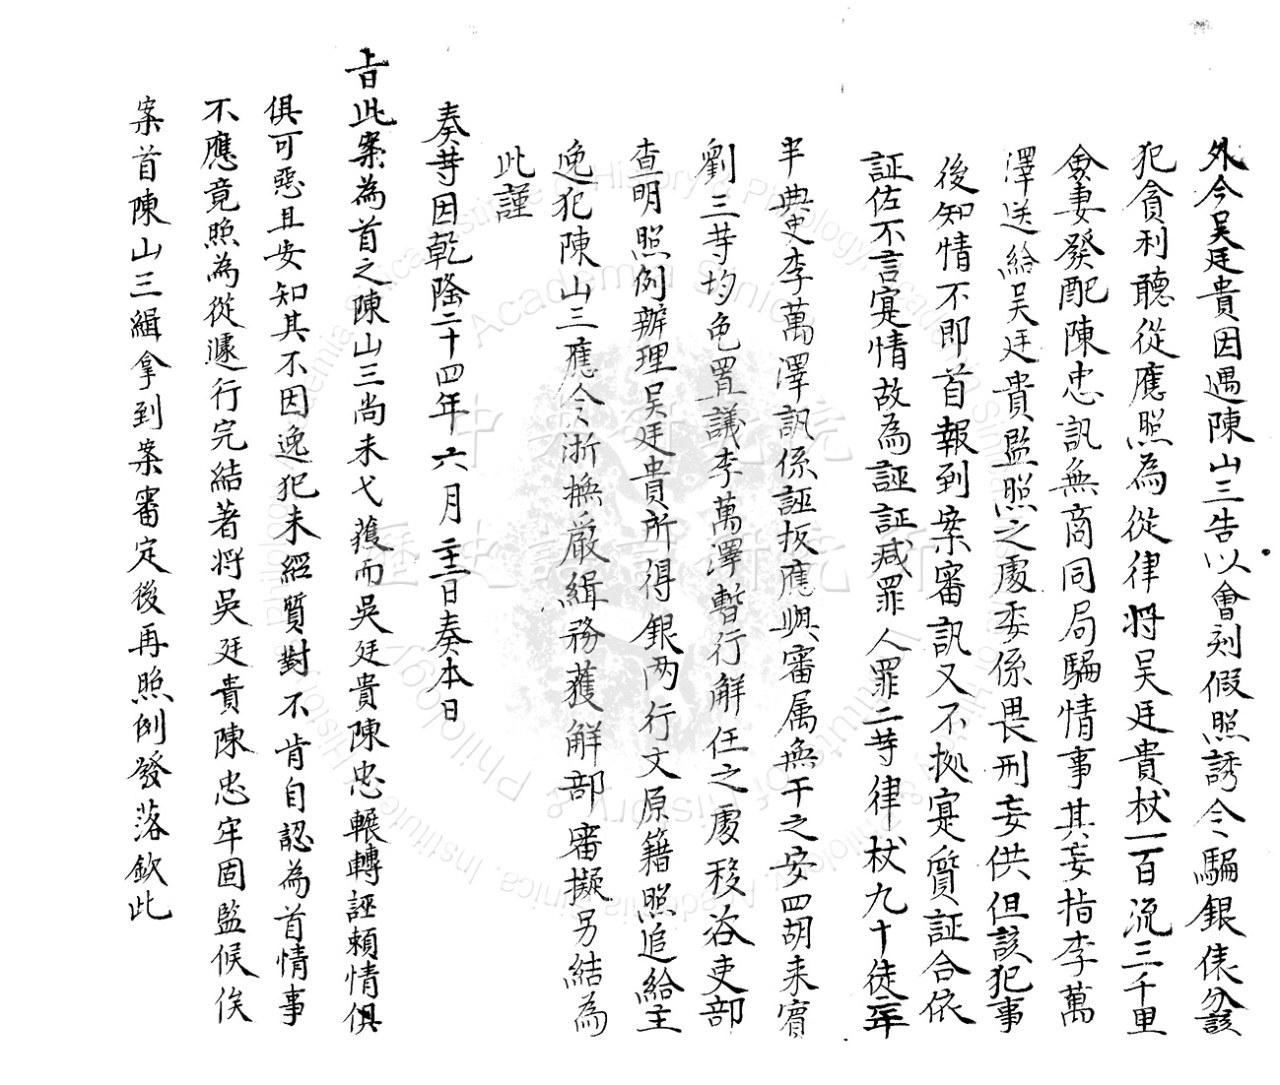 外今吴廷貴因遇陳山三告以會刻假照誘令騙銀俵分該
犯貪利聽從應照為從律将吴廷貴杖一百流三千里
僉妻發配陳忠訊無商同局騙情事其妄指李萬
澤送給吴廷貴監照之處委係畏刑妄供但該犯事
後知情不即首報到案審訊又不拠寔質証合依
証佐不言寔情故為誣証减罪人罪二等律杖九十徒二年
半典吏李萬澤訊係誣扳應與審属無干之安四胡来賓
劉三等均免置議李萬澤暫行解任之處移咨吏部
查明照例辦理吴廷貴所得銀两行文原籍照追給主
逸犯陳山三應令浙撫厳緝務獲解部審擬另結為
此謹
奏等因乾隆二十四年六月二十三日奏本日
旨此案為首之陳山三尚未弋獲而吳廷貴陳忠輾轉誣賴情俱
俱可惡且安知其不因逸犯未經質對不肯自認為首情事
不應竟照為從遽行完結著将吳廷貴陳忠牢固監候俟
案首陳山三緝拿到案審定後再照例發落欽此
中央研究院
歷史語言研究所
Academia Sinica
Institute of History & Philology, Academia Sinica